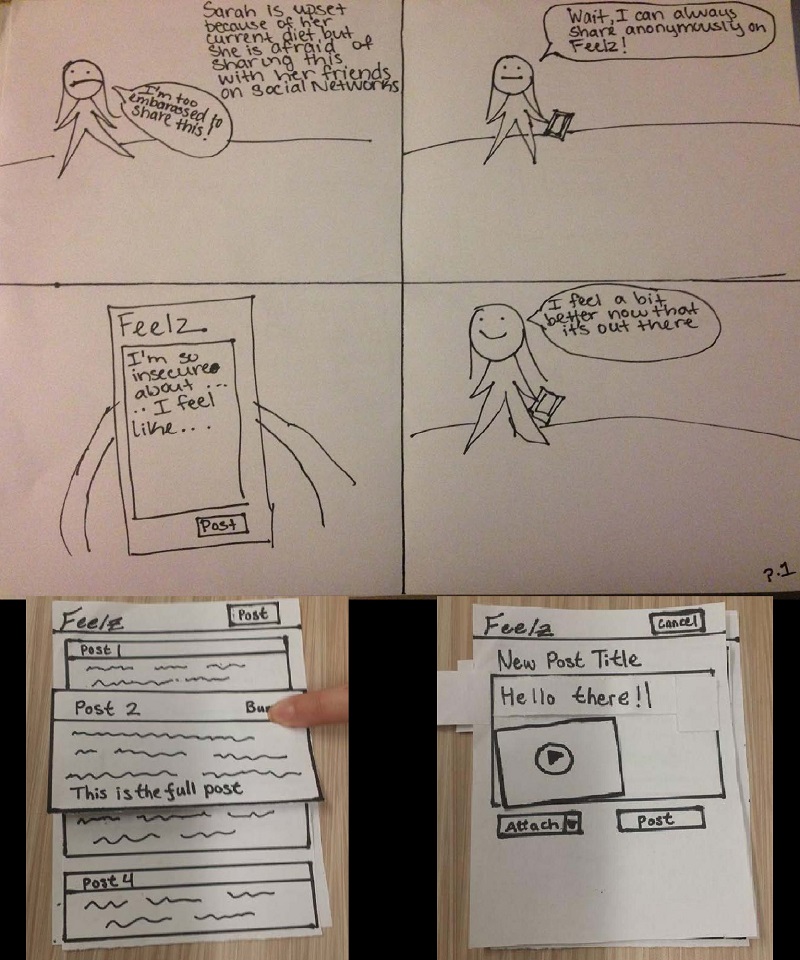 Sarah is upset
because of her
current diet, but
she is afraid of
sharing this
with her friends
on social Networks
I'm too
embarassed to
share this!
Wait, I can always
share anonymously on
Feelz!
Feelz
I'm so
insecure
about ...
.. I feel
like...
Post
I feel a bit
better now that
it's out there
P.1
Feelz
Post
Post 1
Post 2
This is the full post
Post 4
Feelz
Cancel
New Post Title
Hello there!!
Attach
Post